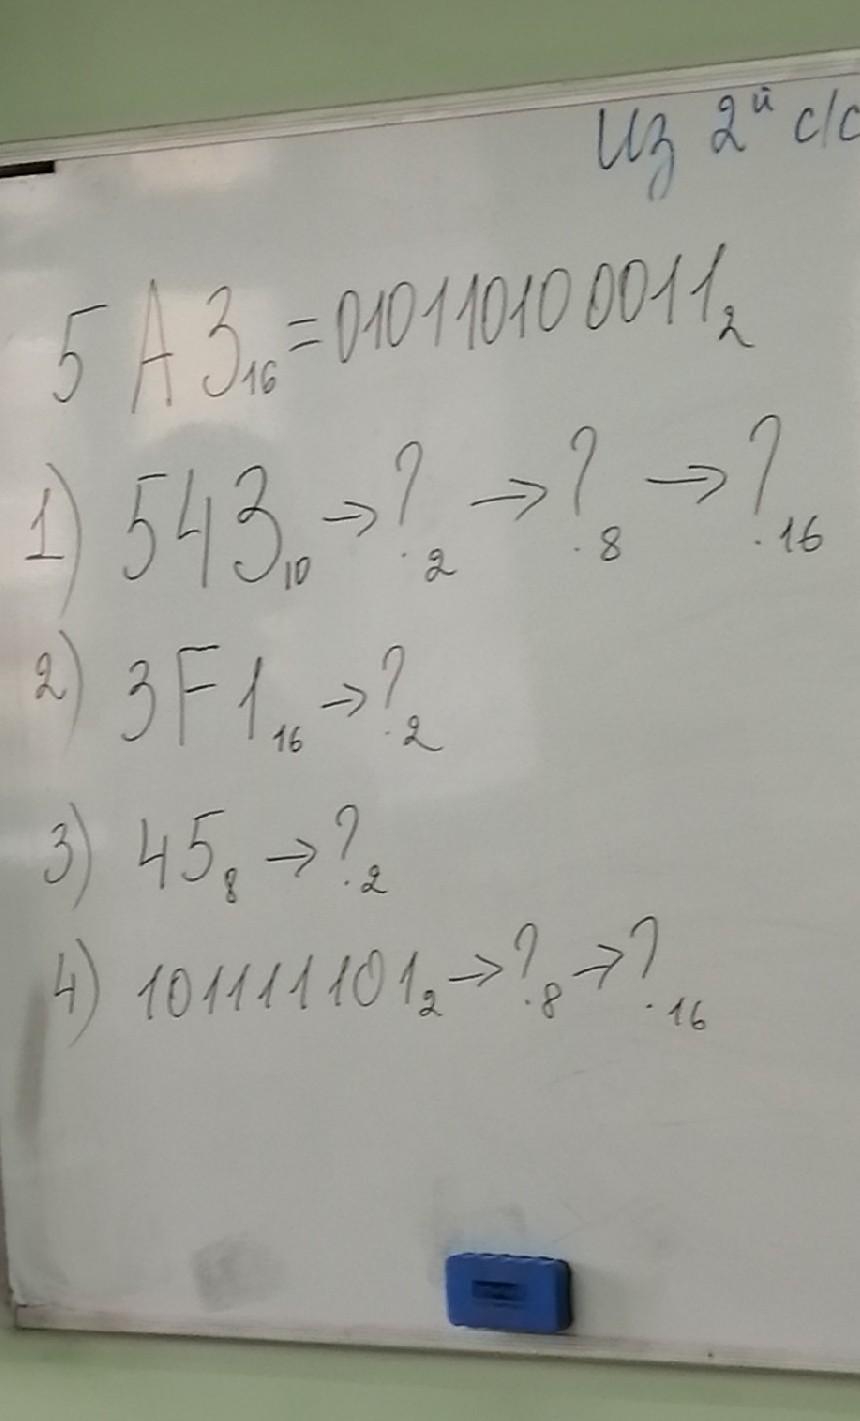 Из 2й с/с
5A3₁₆=010110100011₂
1) 543₁₀→?₂→?₈→?₁₆
2) 3F1₁₆→?₂
3) 45₈→?₂
4) 101111101₂→?₈→?₁₆